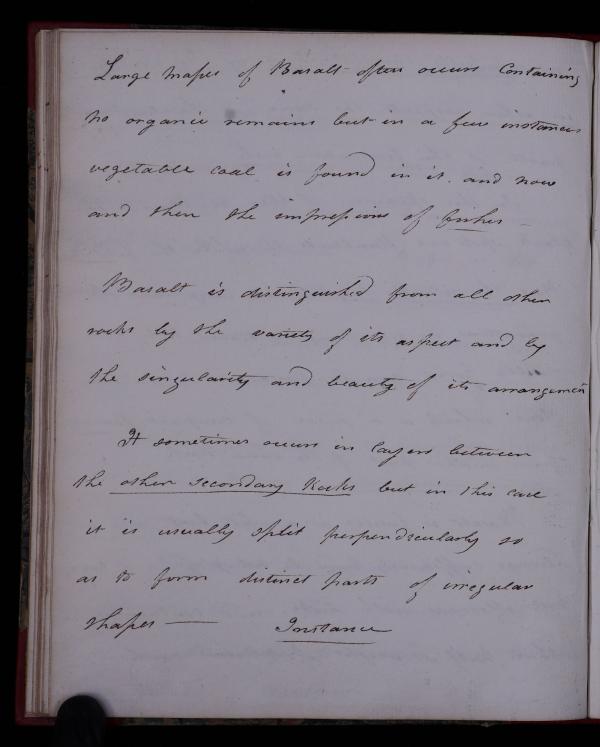 Large masses of Basalt often occurs Containing
no organic remains but in a few instances
vegetable coal is found in it. and now
and then the impressions of fishes
Basalt is distinguished from all other
rocks by the variety of its aspect and by
the singularity and beauty of its arrangement
It sometimes occurs in layers between
the other secondary Rocks but in this case
it is usually split perpendicularly so
as to form distinct parts of irregular
shapes — Instance